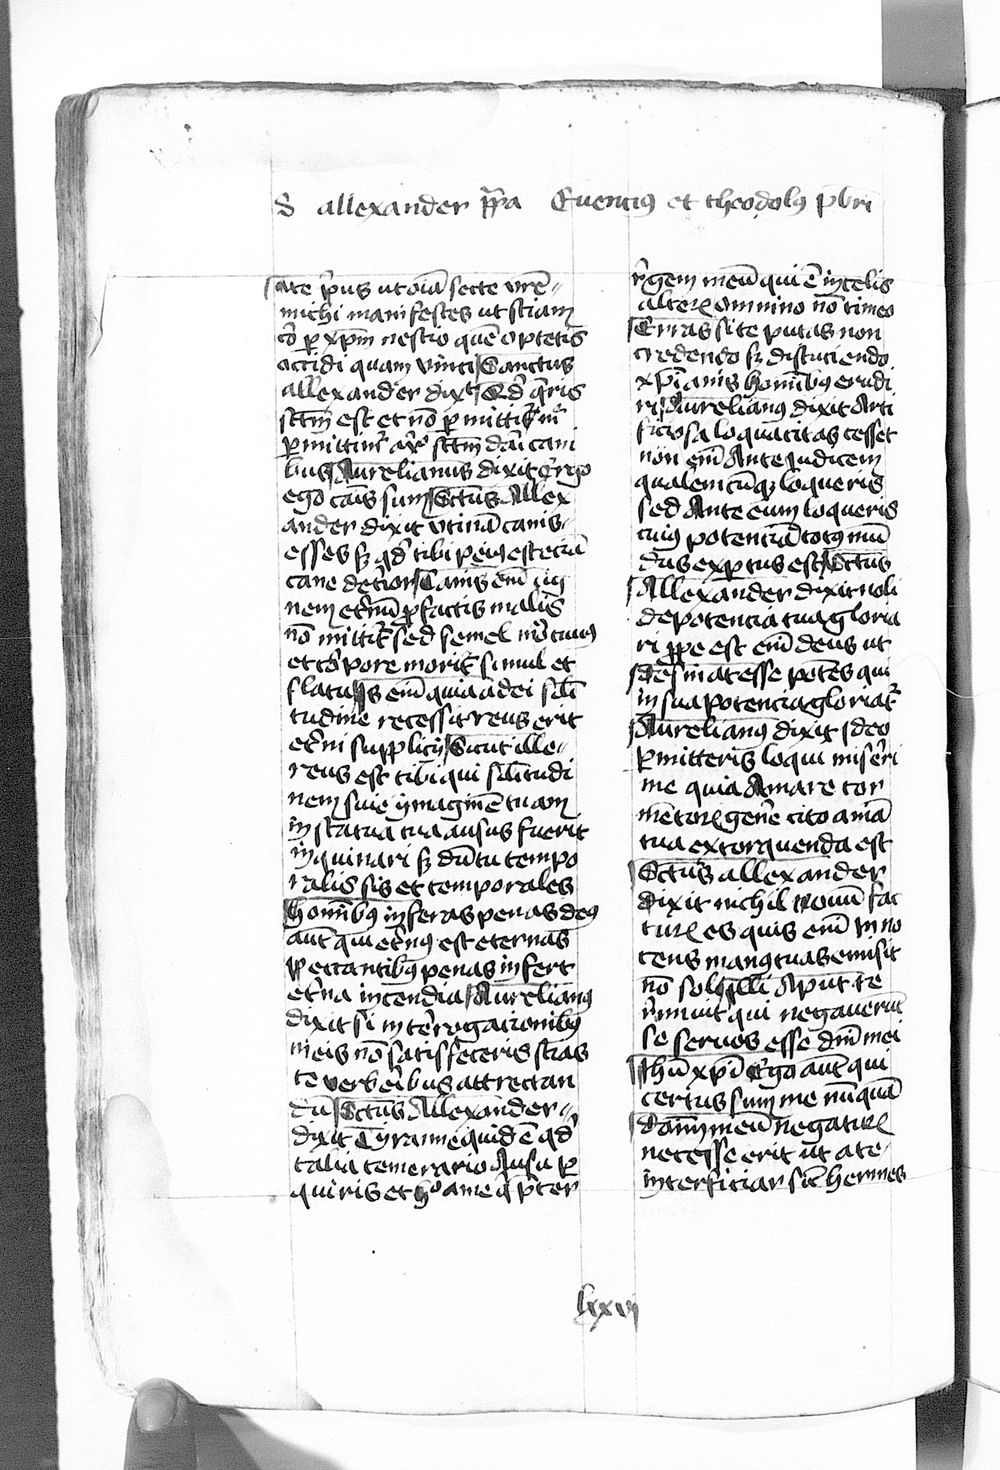 S allexander pp̄a Euencius et theodolus p̄bri
a te prius ut oīa secte vrē
michi manifestes ut sciam
cur p xpm nescio quē optetis
occidi quam vinci Sanctus
allexander dixit Qd̄ q̄ris
sctm̄ est et nō p̄mittitur nr̄
p̄mittimur aūt sctm̄ dari cani
bus Aurelianus dixit Ergo
ego cais sum Sctūs Allex
ander dixit Vtinā canis
esses sz qd̄ tibi peius est eciā
cane deterior Canis em̄ in ig
nem et̄nū p factis malis
nō mittitur sed semel morituus
et corpore moritur simul et
flatu Is em̄ qui a dei sili
tudine recessit reus erit
et̄ni supplicij Sicut ille
reus est tibi qui silitudi
nem siue ymaginē tuam
in statua tua ausus fuerit
inquinari sz dū tu tempo
ralis sis et temporales
hominibus inferas penas deus
aūt qui et̄nus est eternas
peccantibus penas infert
et̄na incendia Aurelianus
dixit si interrogacionibus
meis nō satisfeceris scias
te verberibus attrectan
dū Sctūs Allexander
dixit Tyranne quid ē qd̄
talia temerario Ausu p
quiris et hoc a me q̄ preter
regem meū qui ē in celis
alterū omnino nō timeo
Erras si te putas non
credendo sz discuciendo
xp̄ianis hominibus erudi
ri Aurelianus dixit Arti
ficiosa loquacitas cesset
non em̄ Ante judicem
qualemcūqz loqueris
sed Ante eum loqueris
cuius potenciā totus mū
dus expertus est Sctūs
Allexander dixit noli
de potencia tua gloria
ri prope est em̄ deus ut
desinat esse potēs qui
in sua potencia gloriatur
Aurelianus dixit Ideo
p̄mitteris loqui miserri
me quia Amare tor
mētorū gene cito aniā
tua extorquenda est
Sctūs allexander
dixit nichil nouū fac
turus es quis em̄ in no
cens manus tuas emisit
nō soli illi Aput te
viuūt qui negauerūt
se seruos esse dn̄i mei
Jhū xp̄i Ego aūt qui
certus sum me nūquā
dominū meū negaturū
necesse erit ut a te
interficiar sic hermes
lxxvj